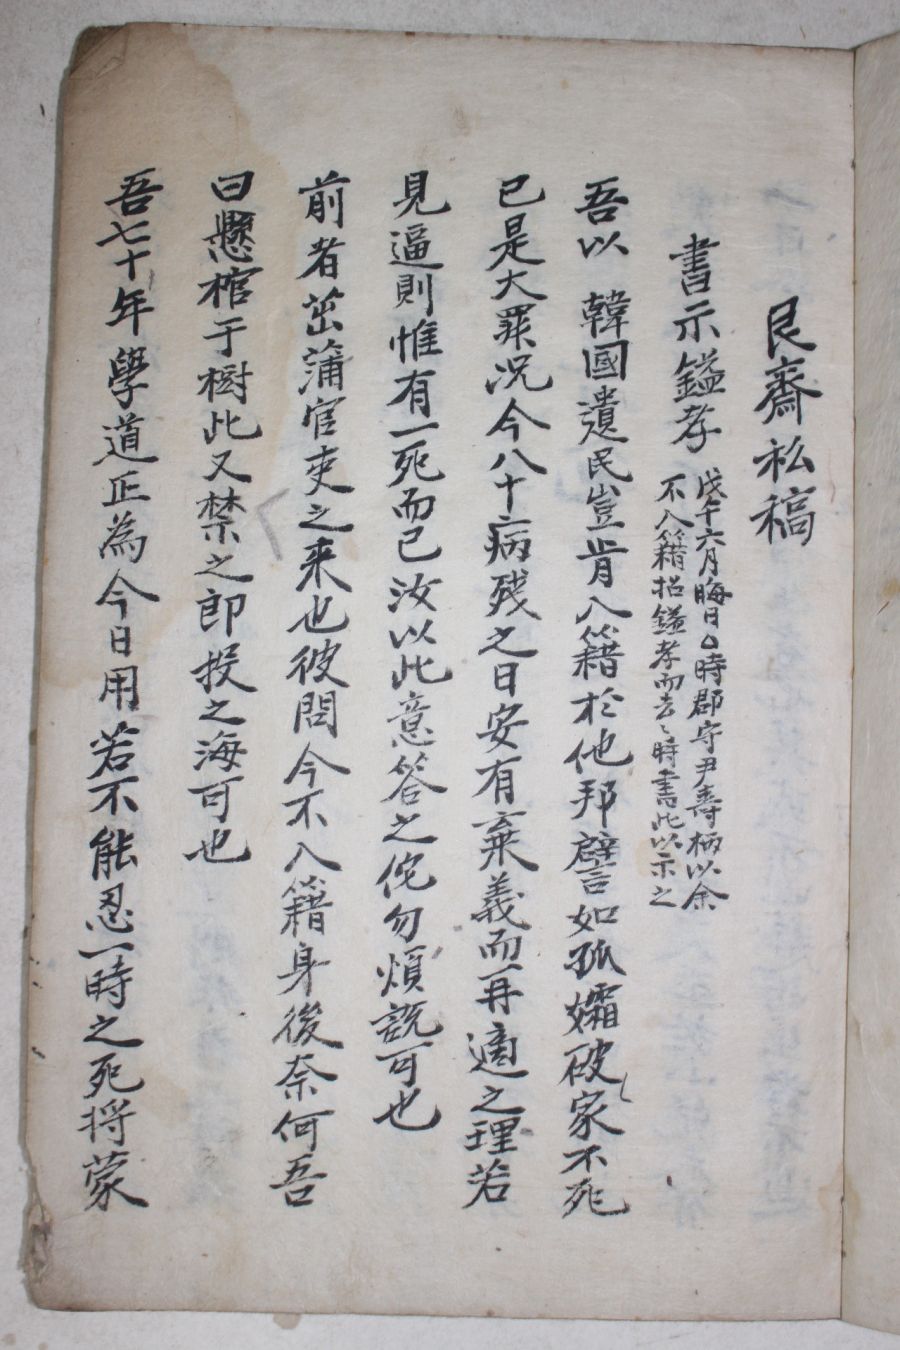 艮齋私稿
書示鎰孝
戊午六月晦日日時郡守尹壽柄以余
不入籍招鎰孝而去々時書此以示之
吾以 韓國遺民豈肯入籍於他邦譬如孤孀破家不死
已是大罪況今八十病残之日安有棄義而再適之理若
見逼則惟有一死而已汝以此意答之佗勿煩說可也
前者茁蒲官吏之来也彼問今不入籍身後奈何吾
曰懸棺于樹此又禁之即投之海可也
吾七十年學道正為今日用若不能忍一時之死将蒙